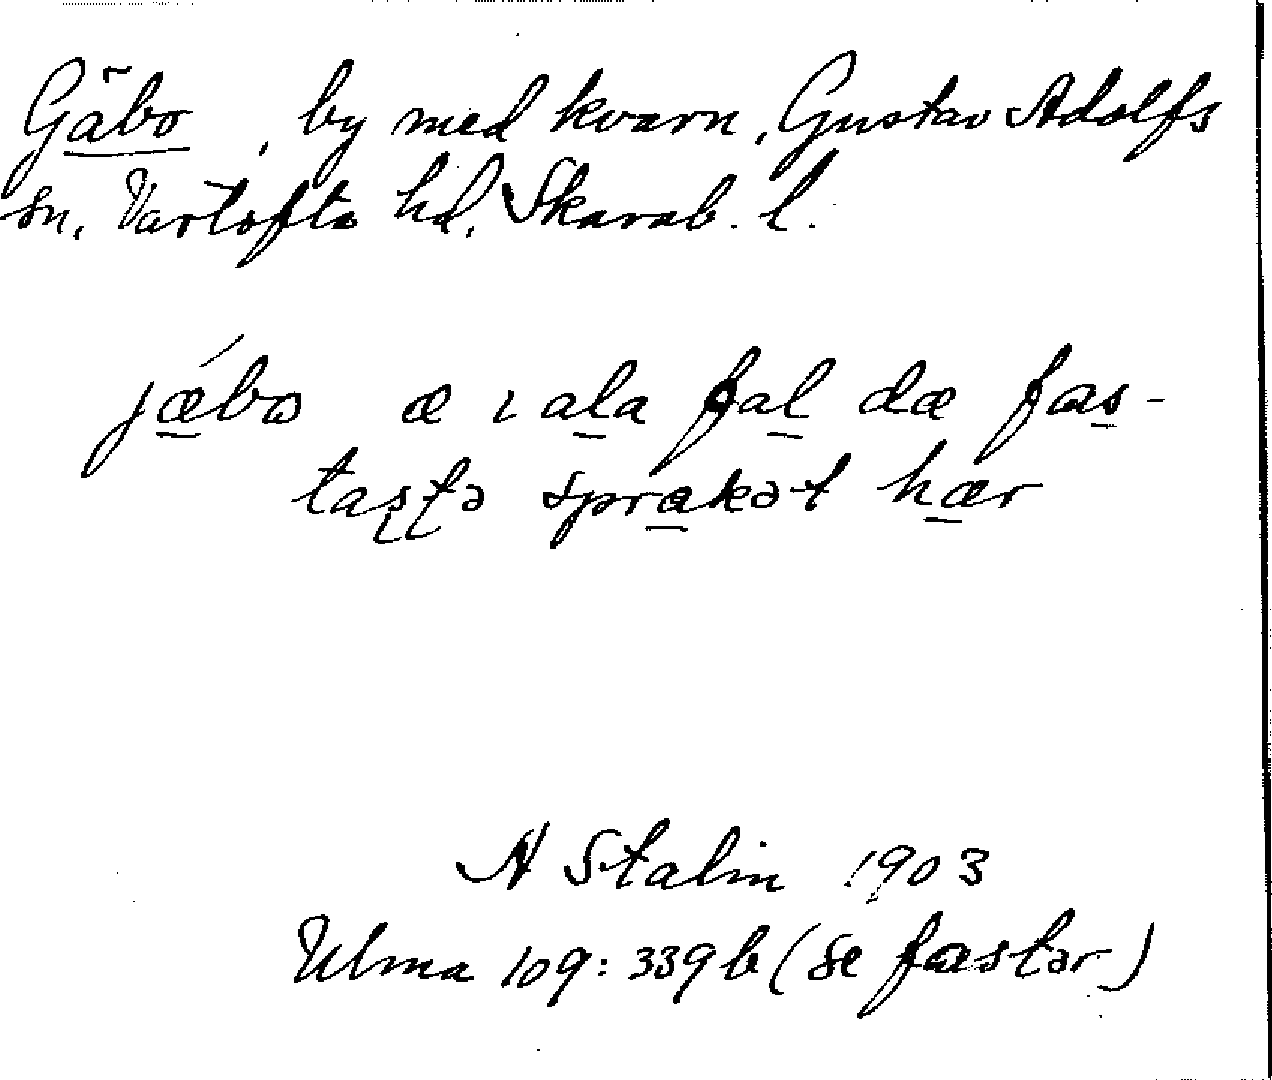 Gäbo, by med kvarn, Gustav Adolfs
sn, Vartofta hd, Skarab. l.
jǽ̲bo æ ı al̲a fal̲ dæ fas̲-
tas̨t̨ə spra̲kət hæ̲r
N Stalin 1903
Ulma 109:339 b (se fastər)